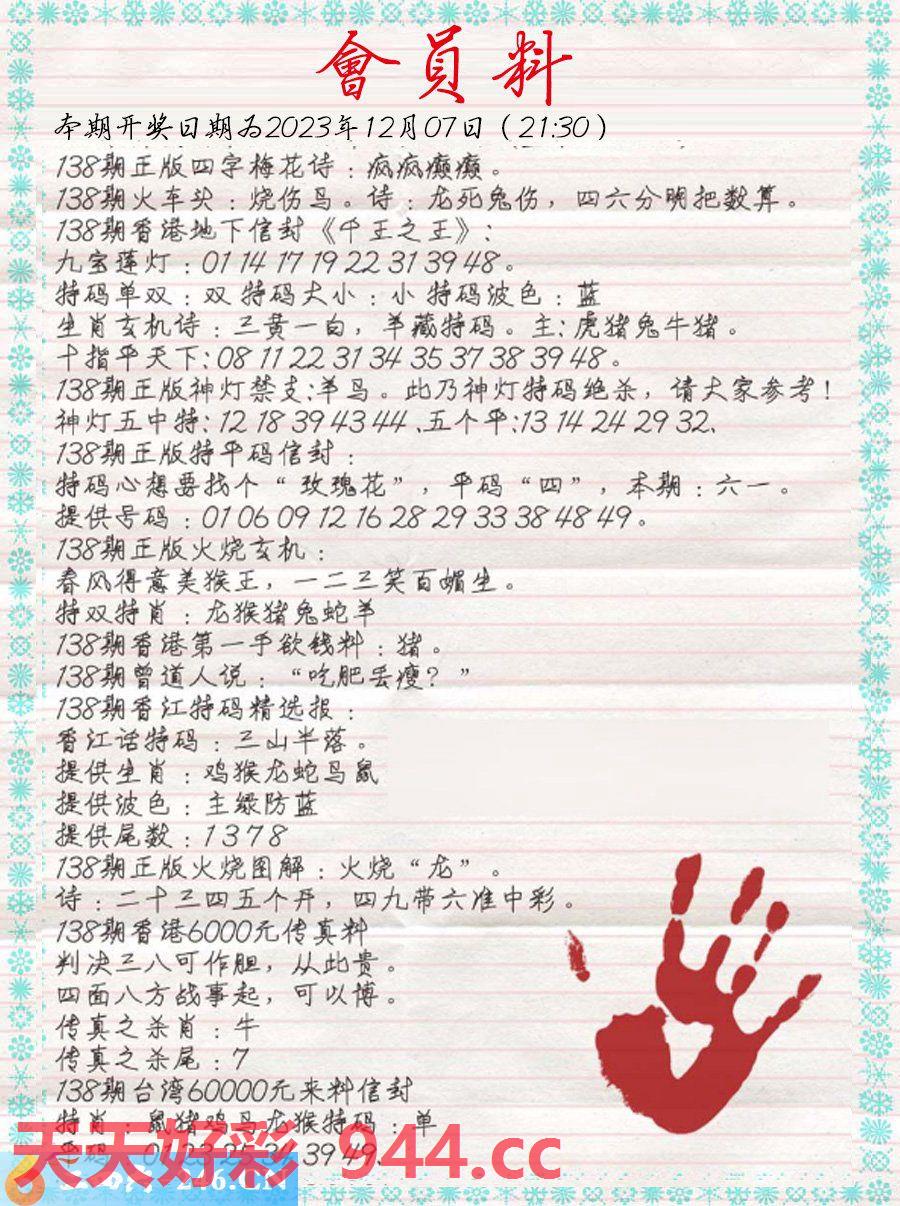 會員料
本期开奖日期为2023年12月07日（21:30）
138期正版四字梅花诗：疯疯癫癫。
138期火车头：烧伤鸟。诗：龙死兔伤，四六分明把数算。
138期香港地下信封《千王之王》:
九宝莲灯：01 14 17 19 22 31 39 48。
特码单双：双 特码大小：小 特码波色：蓝
生肖玄机诗：三黄一白，羊藏特码。主:虎猪兔牛猪。
十指平天下:08 11 22 31 34 35 37 38 39 48。
138期正版神灯禁支:羊鸟。此乃神灯特码绝杀，请大家参考！
神灯五中特: 12 18 39 43 44、五个平:13 14 24 29 32、
138期正版特平码信封：
特码心想要找个“玫瑰花”，平码“四”，本期：六一。
提供号码：01 06 09 12 16 28 29 33 38 48 49。
138期正版火烧玄机：
春风得意美猴王，一二三笑百媚生。
特双特肖：龙猴猪兔蛇羊
138期香港第一手欲钱料：猪。
138期曾道人说：“吃肥丢瘦？”
138期香江特码精选报：
香江话特码：三山半落。
提供生肖：鸡猴龙蛇马鼠
提供波色：主绿防蓝
提供尾数：1 3 7 8
138期正版火烧图解：火烧“龙”。
诗：二十三四五个开，四九带六准中彩。
138期香港6000元传真料
判决三八可作胆，从此贵。
四面八方战事起，可以博。
传真之杀肖：牛
传真之杀尾：7
138期台湾60000元来料信封
特肖：鼠猪鸡马龙猴特码：单
平码：01 23 25 34 39 49、
天天好彩 944.cc